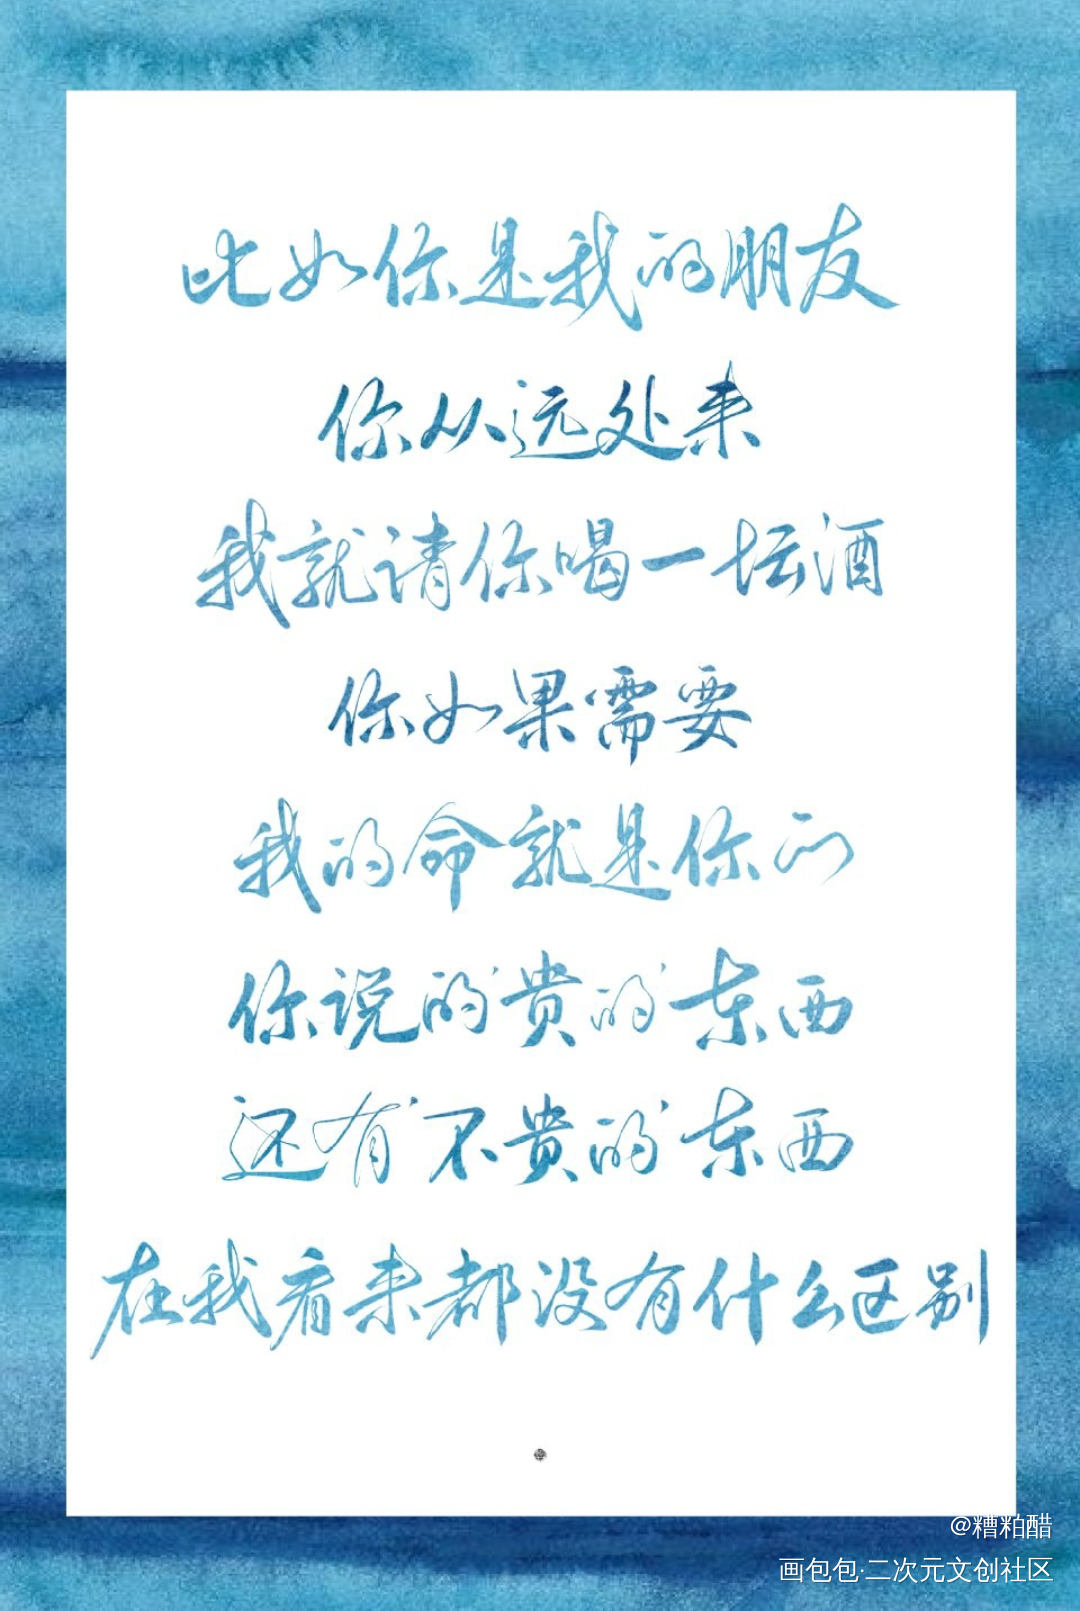 比如你是我的朋友
你从远处来
我就请你喝一坛酒
你如果需要
我的命就是你的
你说的贵的东西
还有不贵的东西
在我看来都没有什么区别
@糟粕醋
画包包·二次元文创社区